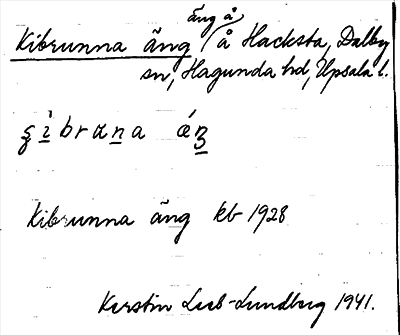 äng å
Kibrunna äng / å Hacksta, Dalby
sn, Hagunda hd, Upsala l.
Kibrunna äng kb 1928
Kerstin Leeb-Lundberg 1941.